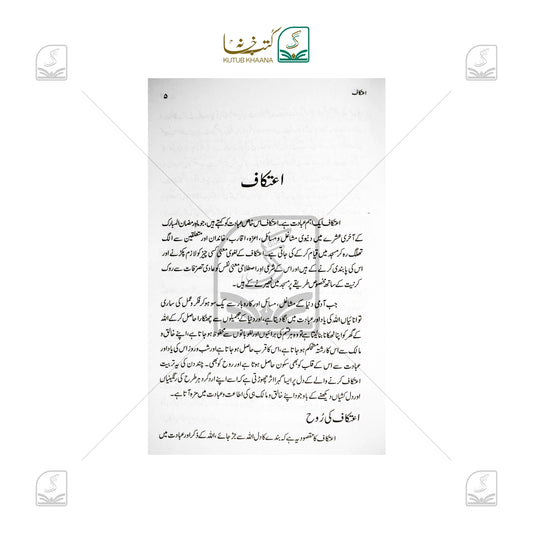 کتب خانہ
KUTUB KHAANA
اعتکاف
۵
اعتکاف
اعتکاف ایک اہم عبادت ہے۔ اعتکاف اس خاص عبادت کو کہتے ہیں، جو ماہ رمضان المبارک
کے آخری عشرے میں دنیوی مشاغل و مسائل، اعزہ، اقارب، خاندان اور متعلقین سے الگ
تھلگ رہ کر مسجد میں قیام کر کے کی جاتی ہے۔ اعتکاف کے لغوی معنی کسی چیز کو لازم پکڑنے اور
اس کی پابندی کرنے کے ہیں اور اس کے شرعی اور اصطلاحی معنی نفس کو عادی تصرفات سے روک
کر نیت کے ساتھ مخصوص طریقے پر مسجد میں ٹھہرنے کے ہیں۔
جب آدمی دنیا کے مشاغل، مسائل اور کاروبار سے یک سو ہو کر فکر و عمل کی ساری
توانائیاں اللہ کی یاد اور عبادت میں لگا دیتا ہے، اور دنیا کے جھمیلوں سے چھٹکارا حاصل کر کے اللہ
کے گھر کو اپنا ٹھکانا بنا لیتا ہے تو وہ ہر قسم کی برائیوں اور لغو باتوں سے محفوظ ہو جاتا ہے، اپنے خالق و
مالک سے اس کا رشتہ مستحکم ہو جاتا ہے، اس کا قرب حاصل ہو جاتا ہے اور شب و روز اس کی یاد اور
عبادت سے اس کے قلب کو بھی سکون حاصل ہوتا ہے اور روح کو بھی۔ چند دن کی یہ تربیت
اعتکاف کرنے والے کے دل پر ایسا گہرا اثر چھوڑتی ہے کہ اسے اپنے ارد گرد ہر طرح کی رنگینیاں
اور دل کشیاں دیکھنے کے باوجود اپنے خالق و مالک ہی کی اطاعت و عبادت میں مزہ آتا ہے۔
اعتکاف کی رُوح
اعتکاف کا مقصود یہ ہے کہ بندے کا دل اللہ سے جڑ جائے، اللہ کے ذکر اور عبادت میں